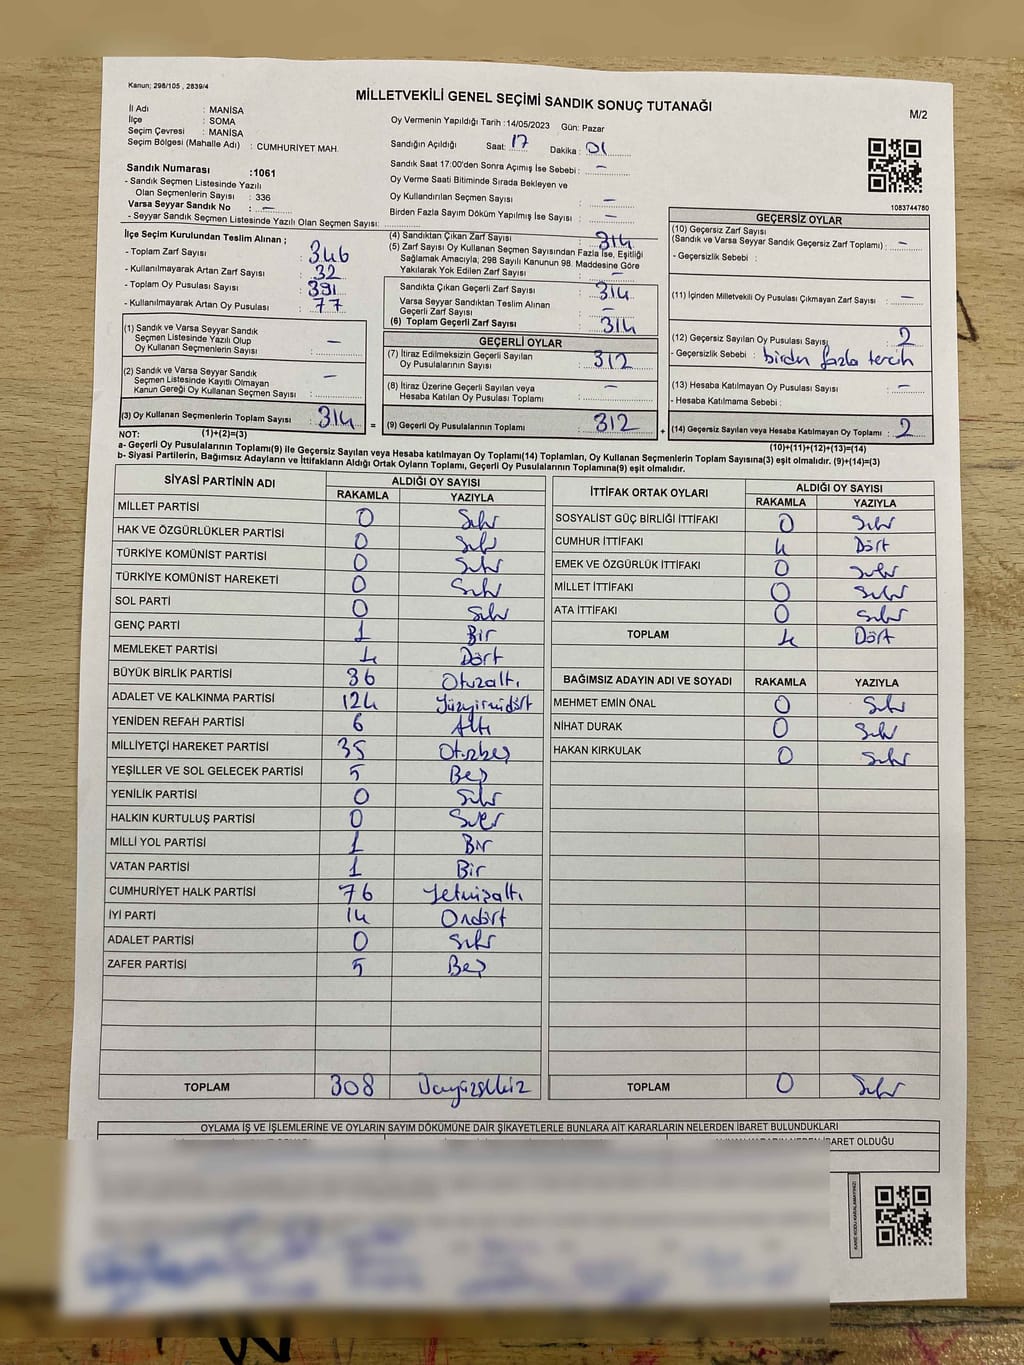 Kanun; 298/105 , 2839/4
MİLLETVEKİLİ GENEL SEÇİMİ SANDIK SONUÇ TUTANAĞI
M/2
İl Adı : MANİSA
İlçe : SOMA
Seçim Çevresi : MANİSA
Seçim Bölgesi (Mahalle Adı) : CUMHURİYET MAH.
Oy Vermenin Yapıldığı Tarih :14/05/2023 Gün: Pazar
Sandığın Açıldığı Saat: 17 Dakika : 01
Sandık Saat 17:00'den Sonra Açımış İse Sebebi : –
Oy Verme Saati Bitiminde Sırada Bekleyen ve
Oy Kullandırılan Seçmen Sayısı : –
Birden Fazla Sayım Döküm Yapılmış İse Sayısı : –
1083744760
Sandık Numarası :1061
- Sandık Seçmen Listesinde Yazılı
Olan Seçmenlerin Sayısı : 336
Varsa Seyyar Sandık No : –
- Seyyar Sandık Seçmen Listesinde Yazılı Olan Seçmen Sayısı:
İlçe Seçim Kurulundan Teslim Alınan ;
- Toplam Zarf Sayısı : 346
- Kullanılmayarak Artan Zarf Sayısı : 32
- Toplam Oy Pusulası Sayısı : 391
- Kullanılmayarak Artan Oy Pusulası : 77
(1) Sandık ve Varsa Seyyar Sandık
Seçmen Listesinde Yazılı Olup
Oy Kullanan Seçmenlerin Sayısı : –
(2) Sandık ve Varsa Seyyar Sandık
Seçmen Listesinde Kayıtlı Olmayan
Kanun Gereği Oy Kullanan Seçmen Sayısı : –
(3) Oy Kullanan Seçmenlerin Toplam Sayısı : 314
(1)+(2)=(3)
(4) Sandıktan Çıkan Zarf Sayısı : 314
(5) Zarf Sayısı Oy Kullanan Seçmen Sayısından Fazla İse, Eşitliği
Sağlamak Amacıyla, 298 Sayılı Kanunun 98. Maddesine Göre
Yakılarak Yok Edilen Zarf Sayısı : –
Sandıkta Çıkan Geçerli Zarf Sayısı : 314
Varsa Seyyar Sandıktan Teslim Alınan
Geçerli Zarf Sayısı : –
(6) Toplam Geçerli Zarf Sayısı : 314
GEÇERLİ OYLAR
(7) İtiraz Edilmeksizin Geçerli Sayılan
Oy Pusulalarının Sayısı : 312
(8) İtiraz Üzerine Geçerli Sayılan veya
Hesaba Katılan Oy Pusulası Toplamı : –
= (9) Geçerli Oy Pusulalarının Toplamı : 312
GEÇERSİZ OYLAR
(10) Geçersiz Zarf Sayısı
(Sandık ve Varsa Seyyar Sandık Geçersiz Zarf Toplamı) : –
- Geçersizlik Sebebi :
(11) İçinden Milletvekili Oy Pusulası Çıkmayan Zarf Sayısı : –
(12) Geçersiz Sayılan Oy Pusulası Sayısı : 2
- Geçersizlik Sebebi : birden fazla tercih
(13) Hesaba Katılmayan Oy Pusulası Sayısı : –
- Hesaba Katılmama Sebebi :
+ (14) Geçersiz Sayılan veya Hesaba Katılmayan Oy Toplamı : 2
(10)+(11)+(12)+(13)=(14)
NOT:
a- Geçerli Oy Pusulalarının Toplamı(9) ile Geçersiz Sayılan veya Hesaba katılmayan Oy Toplamı(14) Toplamları, Oy Kullanan Seçmenlerin Toplam Sayısına(3) eşit olmalıdır. (9)+(14)=(3)
b- Siyasi Partilerin, Bağımsız Adayların ve İttifakların Aldığı Ortak Oyların Toplamı, Geçerli Oy Pusulalarının Toplamına(9) eşit olmalıdır.
SİYASİ PARTİNİN ADI ALDIĞI OY SAYISI
RAKAMLA YAZIYLA
MİLLET PARTİSİ 0 Sıfır
HAK VE ÖZGÜRLÜKLER PARTİSİ 0 Sıfır
TÜRKİYE KOMÜNİST PARTİSİ 0 Sıfır
TÜRKİYE KOMÜNİST HAREKETİ 0 Sıfır
SOL PARTİ 0 Sıfır
GENÇ PARTİ 1 Bir
MEMLEKET PARTİSİ 4 Dört
BÜYÜK BİRLİK PARTİSİ 36 Otuzaltı
ADALET VE KALKINMA PARTİSİ 124 Yüzyirmidört
YENİDEN REFAH PARTİSİ 6 Altı
MİLLİYETÇİ HAREKET PARTİSİ 35 Otuzbeş
YEŞİLLER VE SOL GELECEK PARTİSİ 5 Beş
YENİLİK PARTİSİ 0 Sıfır
HALKIN KURTULUŞ PARTİSİ 0 Sıfır
MİLLİ YOL PARTİSİ 1 Bir
VATAN PARTİSİ 1 Bir
CUMHURİYET HALK PARTİSİ 76 Yetmişaltı
İYİ PARTİ 14 Ondört
ADALET PARTİSİ 0 Sıfır
ZAFER PARTİSİ 5 Beş
TOPLAM 308 Üçyüzsekiz
İTTİFAK ORTAK OYLARI ALDIĞI OY SAYISI
RAKAMLA YAZIYLA
SOSYALİST GÜÇ BİRLİĞİ İTTİFAKI 0 Sıfır
CUMHUR İTTİFAKI 4 Dört
EMEK VE ÖZGÜRLÜK İTTİFAKI 0 Sıfır
MİLLET İTTİFAKI 0 Sıfır
ATA İTTİFAKI 0 Sıfır
TOPLAM 4 Dört
BAĞIMSIZ ADAYIN ADI VE SOYADI RAKAMLA YAZIYLA
MEHMET EMİN ÖNAL 0 Sıfır
NİHAT DURAK 0 Sıfır
HAKAN KIRKULAK 0 Sıfır
TOPLAM 0 Sıfır
OYLAMA İŞ VE İŞLEMLERİNE VE OYLARIN SAYIM DÖKÜMÜNE DAİR ŞİKAYETLERLE BUNLARA AİT KARARLARIN NELERDEN İBARET BULUNDUKLARI
İBARET OLDUĞU